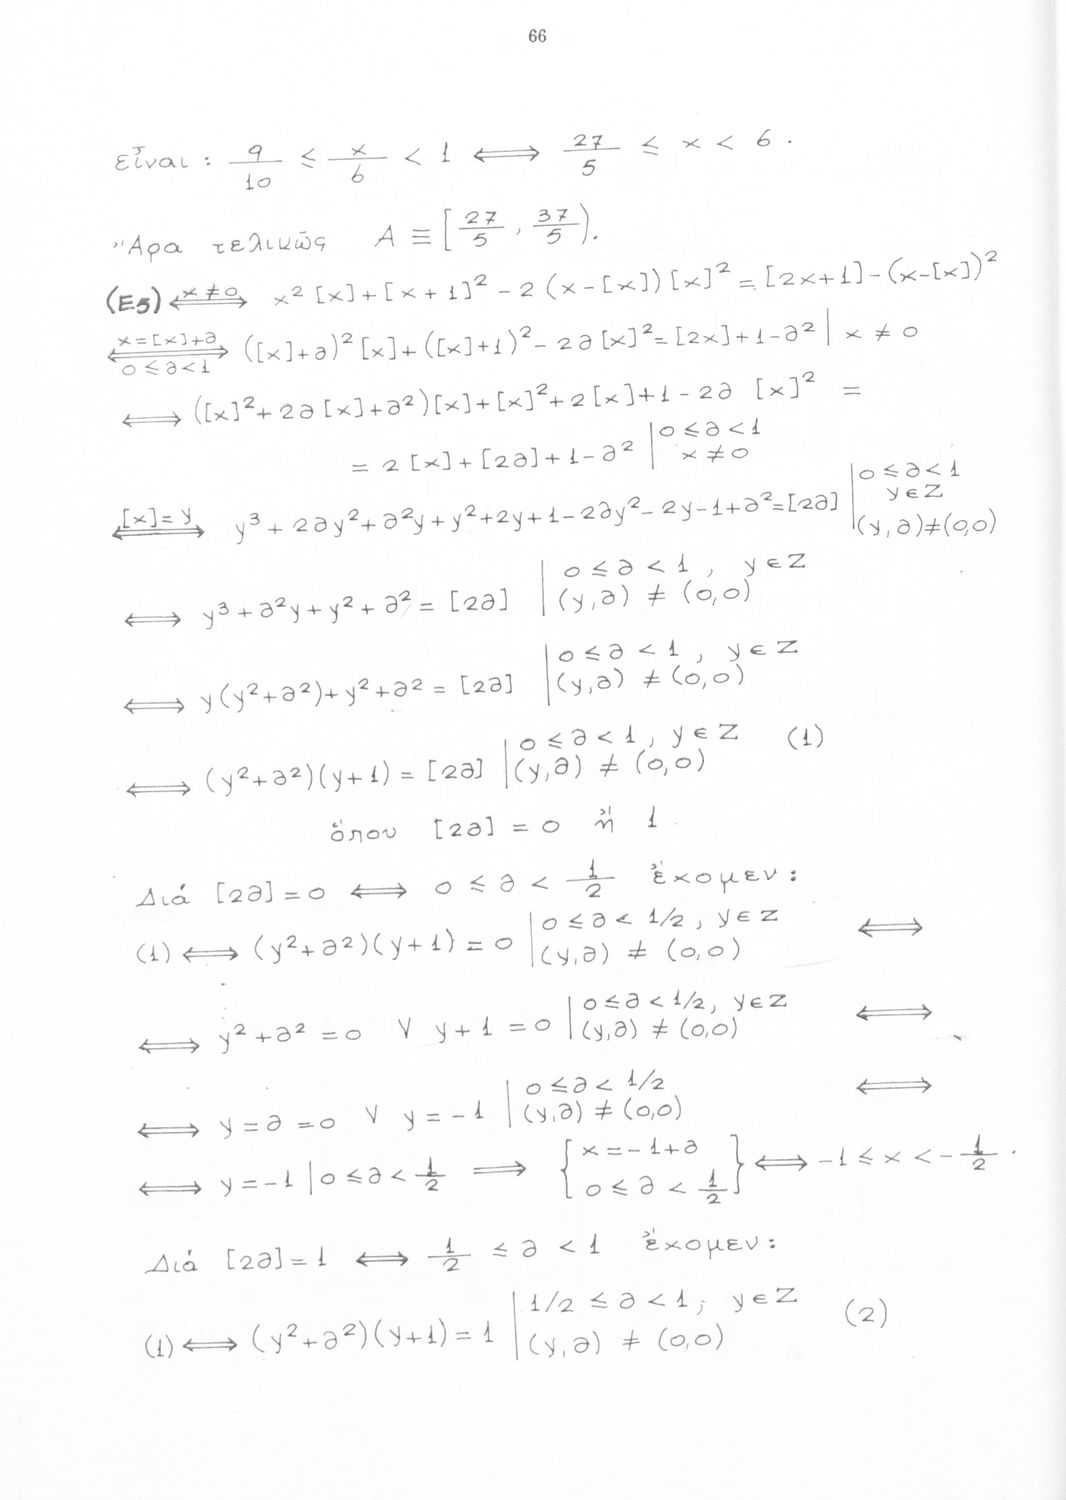 66
εἶναι: 9/10 ≤ x/6 < 1 ⟺ 27/5 ≤ x < 6.
Ἄρα τελικῶς A ≡ [27/5, 37/5).
(E5) ⟺ (x≠0) x² [x] + [x+1]² - 2 (x-[x]) [x]² = [2x+1] - (x-[x])²
⟺ (x=[x]+∂, 0≤∂<1) ([x]+∂)² [x] + ([x]+1)² - 2∂[x]² = [2x]+1-∂² | x ≠ 0
⟺ ([x]²+2∂[x]+∂²)[x]+[x]²+2[x]+1-2∂ [x]² =
= 2[x]+[2∂]+1-∂² | 0≤∂<1, x≠0
⟺ ([x]=y) y³+2∂y²+∂²y+y²+2y+1-2∂y²-2y-1+∂²=[2∂] | 0≤∂<1, y∈Z, (y,∂)≠(0,0)
⟺ y³+∂²y+y²+∂² = [2∂] | 0≤∂<1, y∈Z, (y,∂) ≠ (0,0)
⟺ y(y²+∂²)+y²+∂² = [2∂] | 0≤∂<1, y∈Z, (y,∂) ≠ (0,0)
⟺ (y²+∂²)(y+1) = [2∂] | 0≤∂<1, y∈Z, (y,∂) ≠ (0,0) (1)
ὅπου [2∂] = 0 ἤ 1
Διά [2∂]=0 ⟺ 0 ≤ ∂ < 1/2 ἔχομεν:
(1) ⟺ (y²+∂²)(y+1) = 0 | 0≤∂<1/2, y∈Z, (y,∂) ≠ (0,0) ⟺
⟺ y²+∂² = 0 ∨ y+1 = 0 | 0≤∂<1/2, y∈Z, (y,∂) ≠ (0,0) ⟺
⟺ y=∂=0 ∨ y=-1 | 0≤∂<1/2, (y,∂) ≠ (0,0) ⟺
⟺ y=-1 | 0≤∂<1/2 ⟹ {x=-1+∂, 0≤∂<1/2} ⟺ -1≤x<-1/2.
Διά [2∂]=1 ⟺ 1/2 ≤ ∂ < 1 ἔχομεν:
(1) ⟺ (y²+∂²)(y+1) = 1 | 1/2≤∂<1, y∈Z, (y,∂) ≠ (0,0) (2)